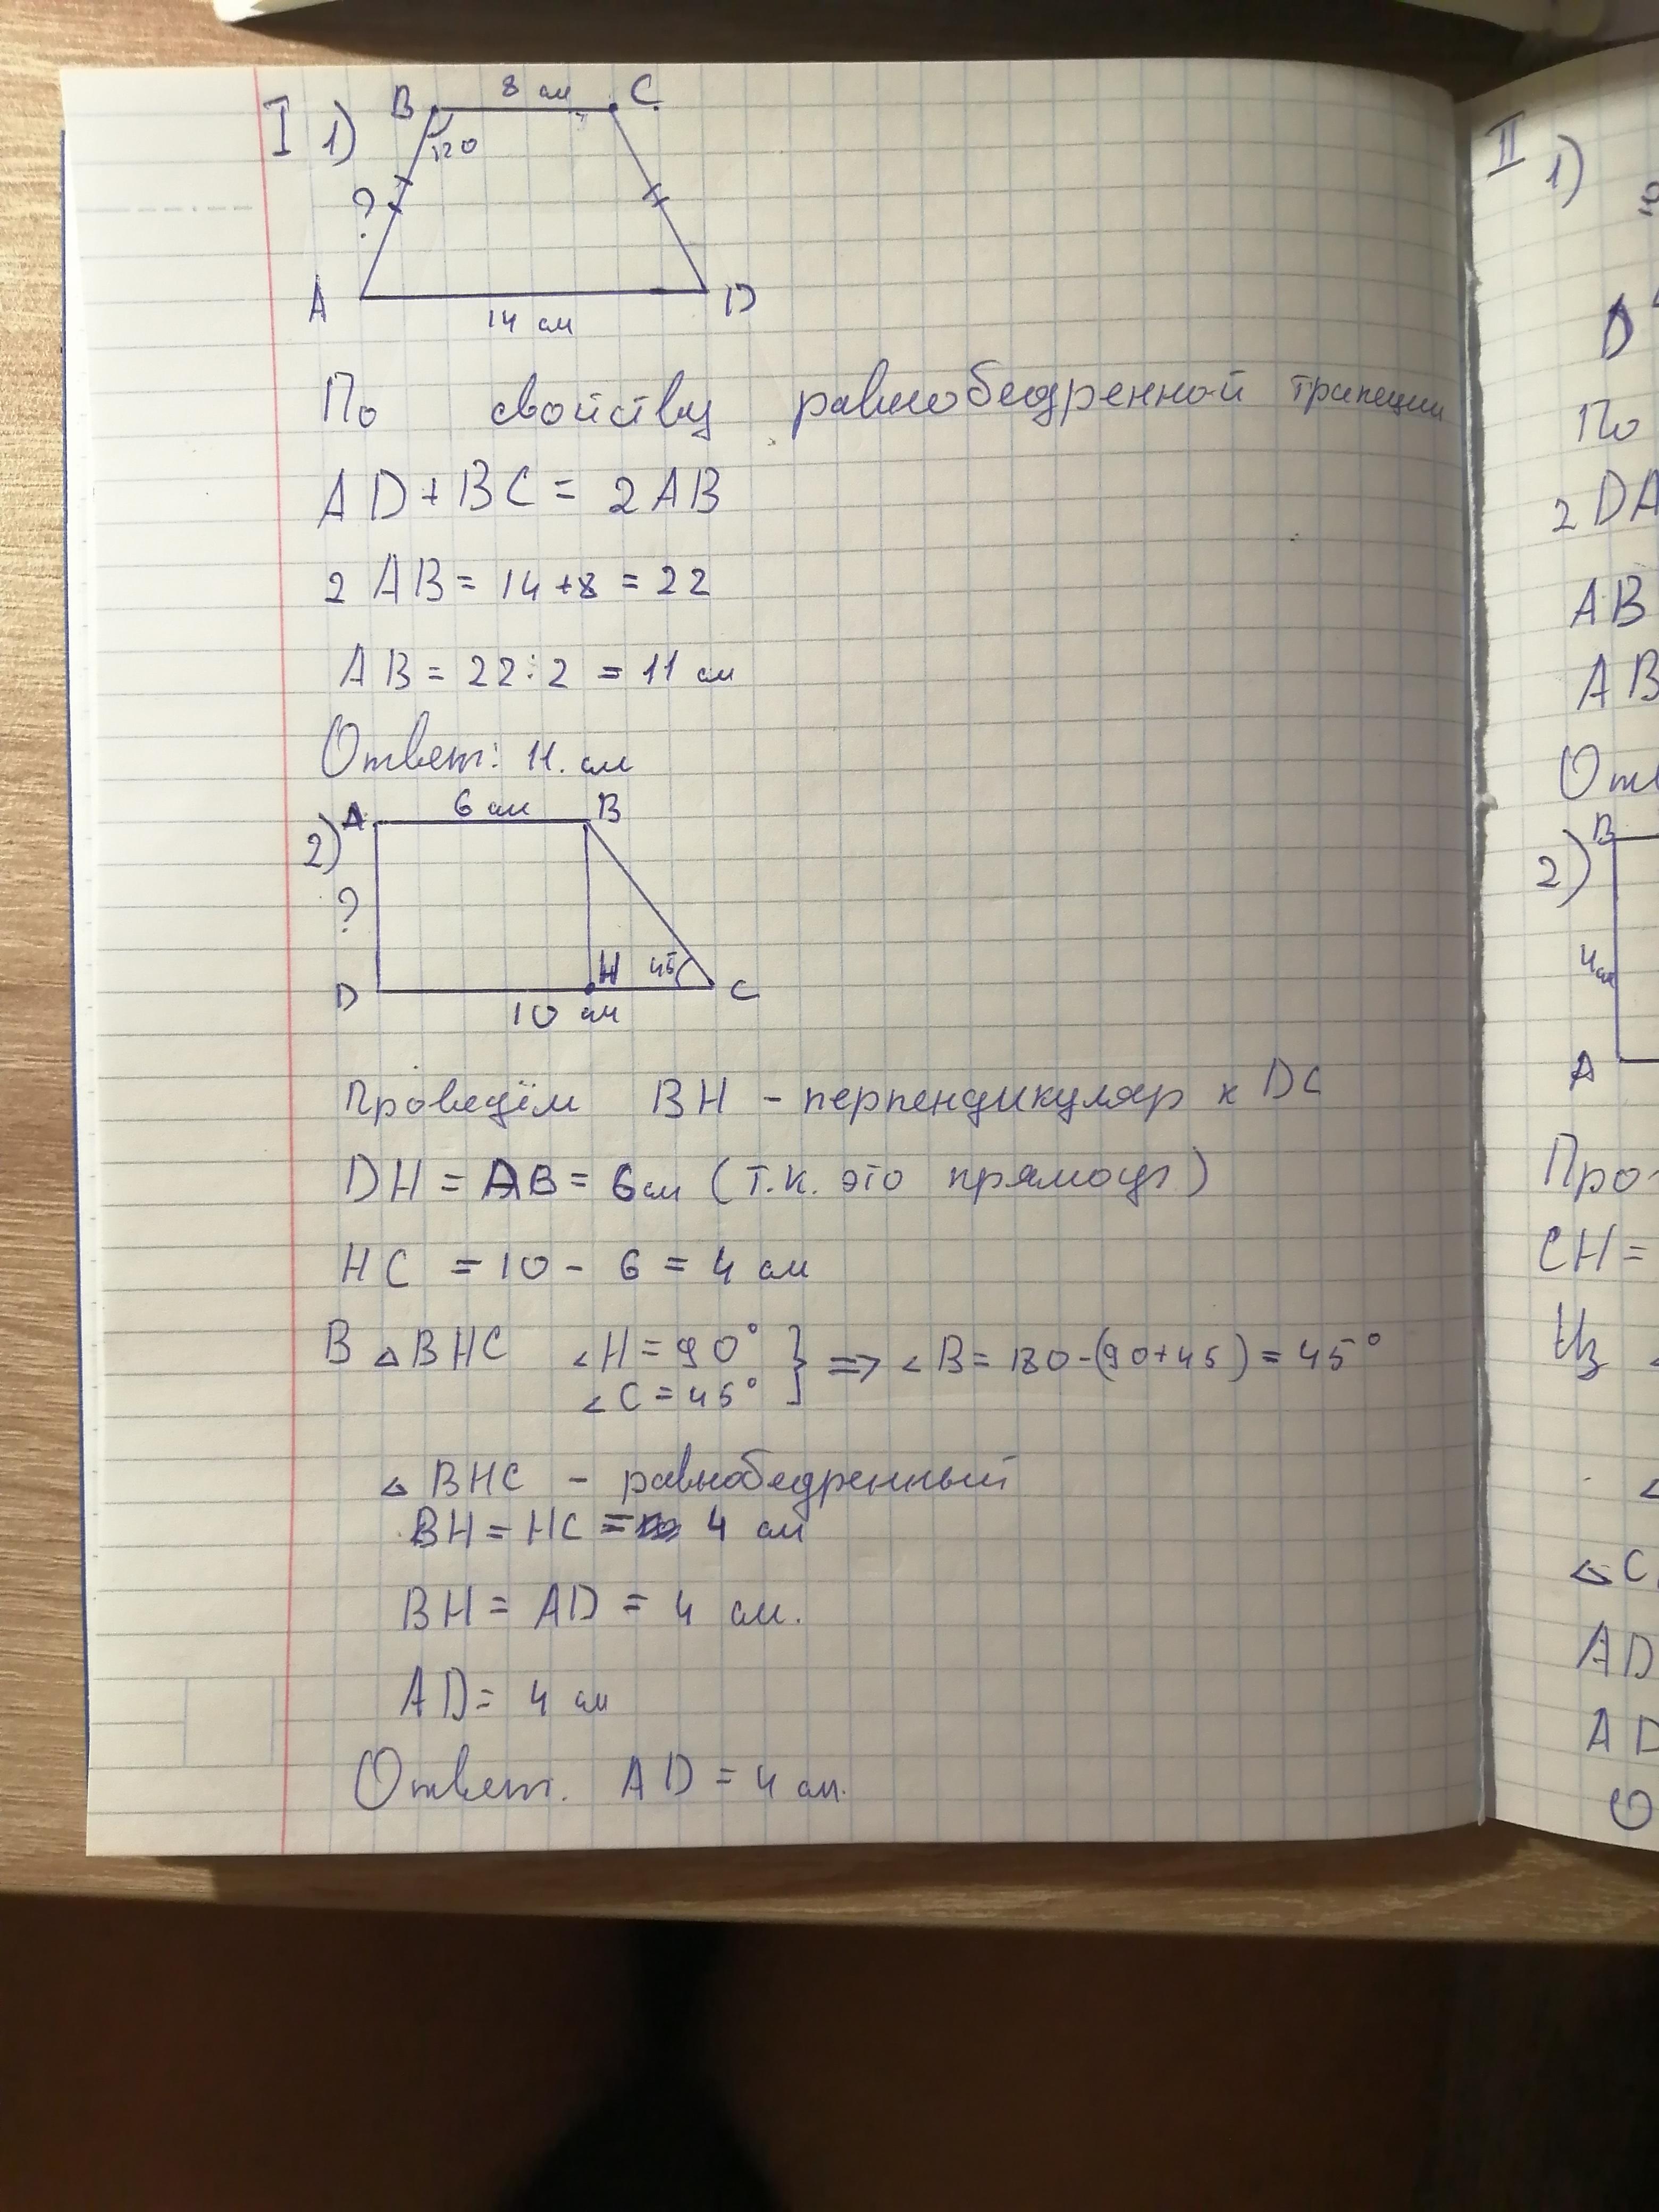 I 1) B 8 см C
120
?
A 14 см D
По свойству равнобедренной трапеции
AD+BC = 2AB
2 AB = 14+8 = 22
AB = 22:2 = 11 см
Ответ: 11. см
2) A 6 см B
?
D H 45 C
10 см
Проведём BH - перпендикуляр к DC
DH = AB = 6см (т.к. это прямоуг)
HC = 10 - 6 = 4 см
В △BHC ∠H = 90° } => ∠B = 180-(90+45) = 45°
∠C = 45°
△ BHC - равнобедренный
BH = HC = 4 см
BH = AD = 4 см.
AD = 4 см
Ответ. AD = 4 см.
II 1)
D
По
2DA
AB
AB
Отв
2) B
4см
A
Про
CH =
Из
△C
AD
AD
О